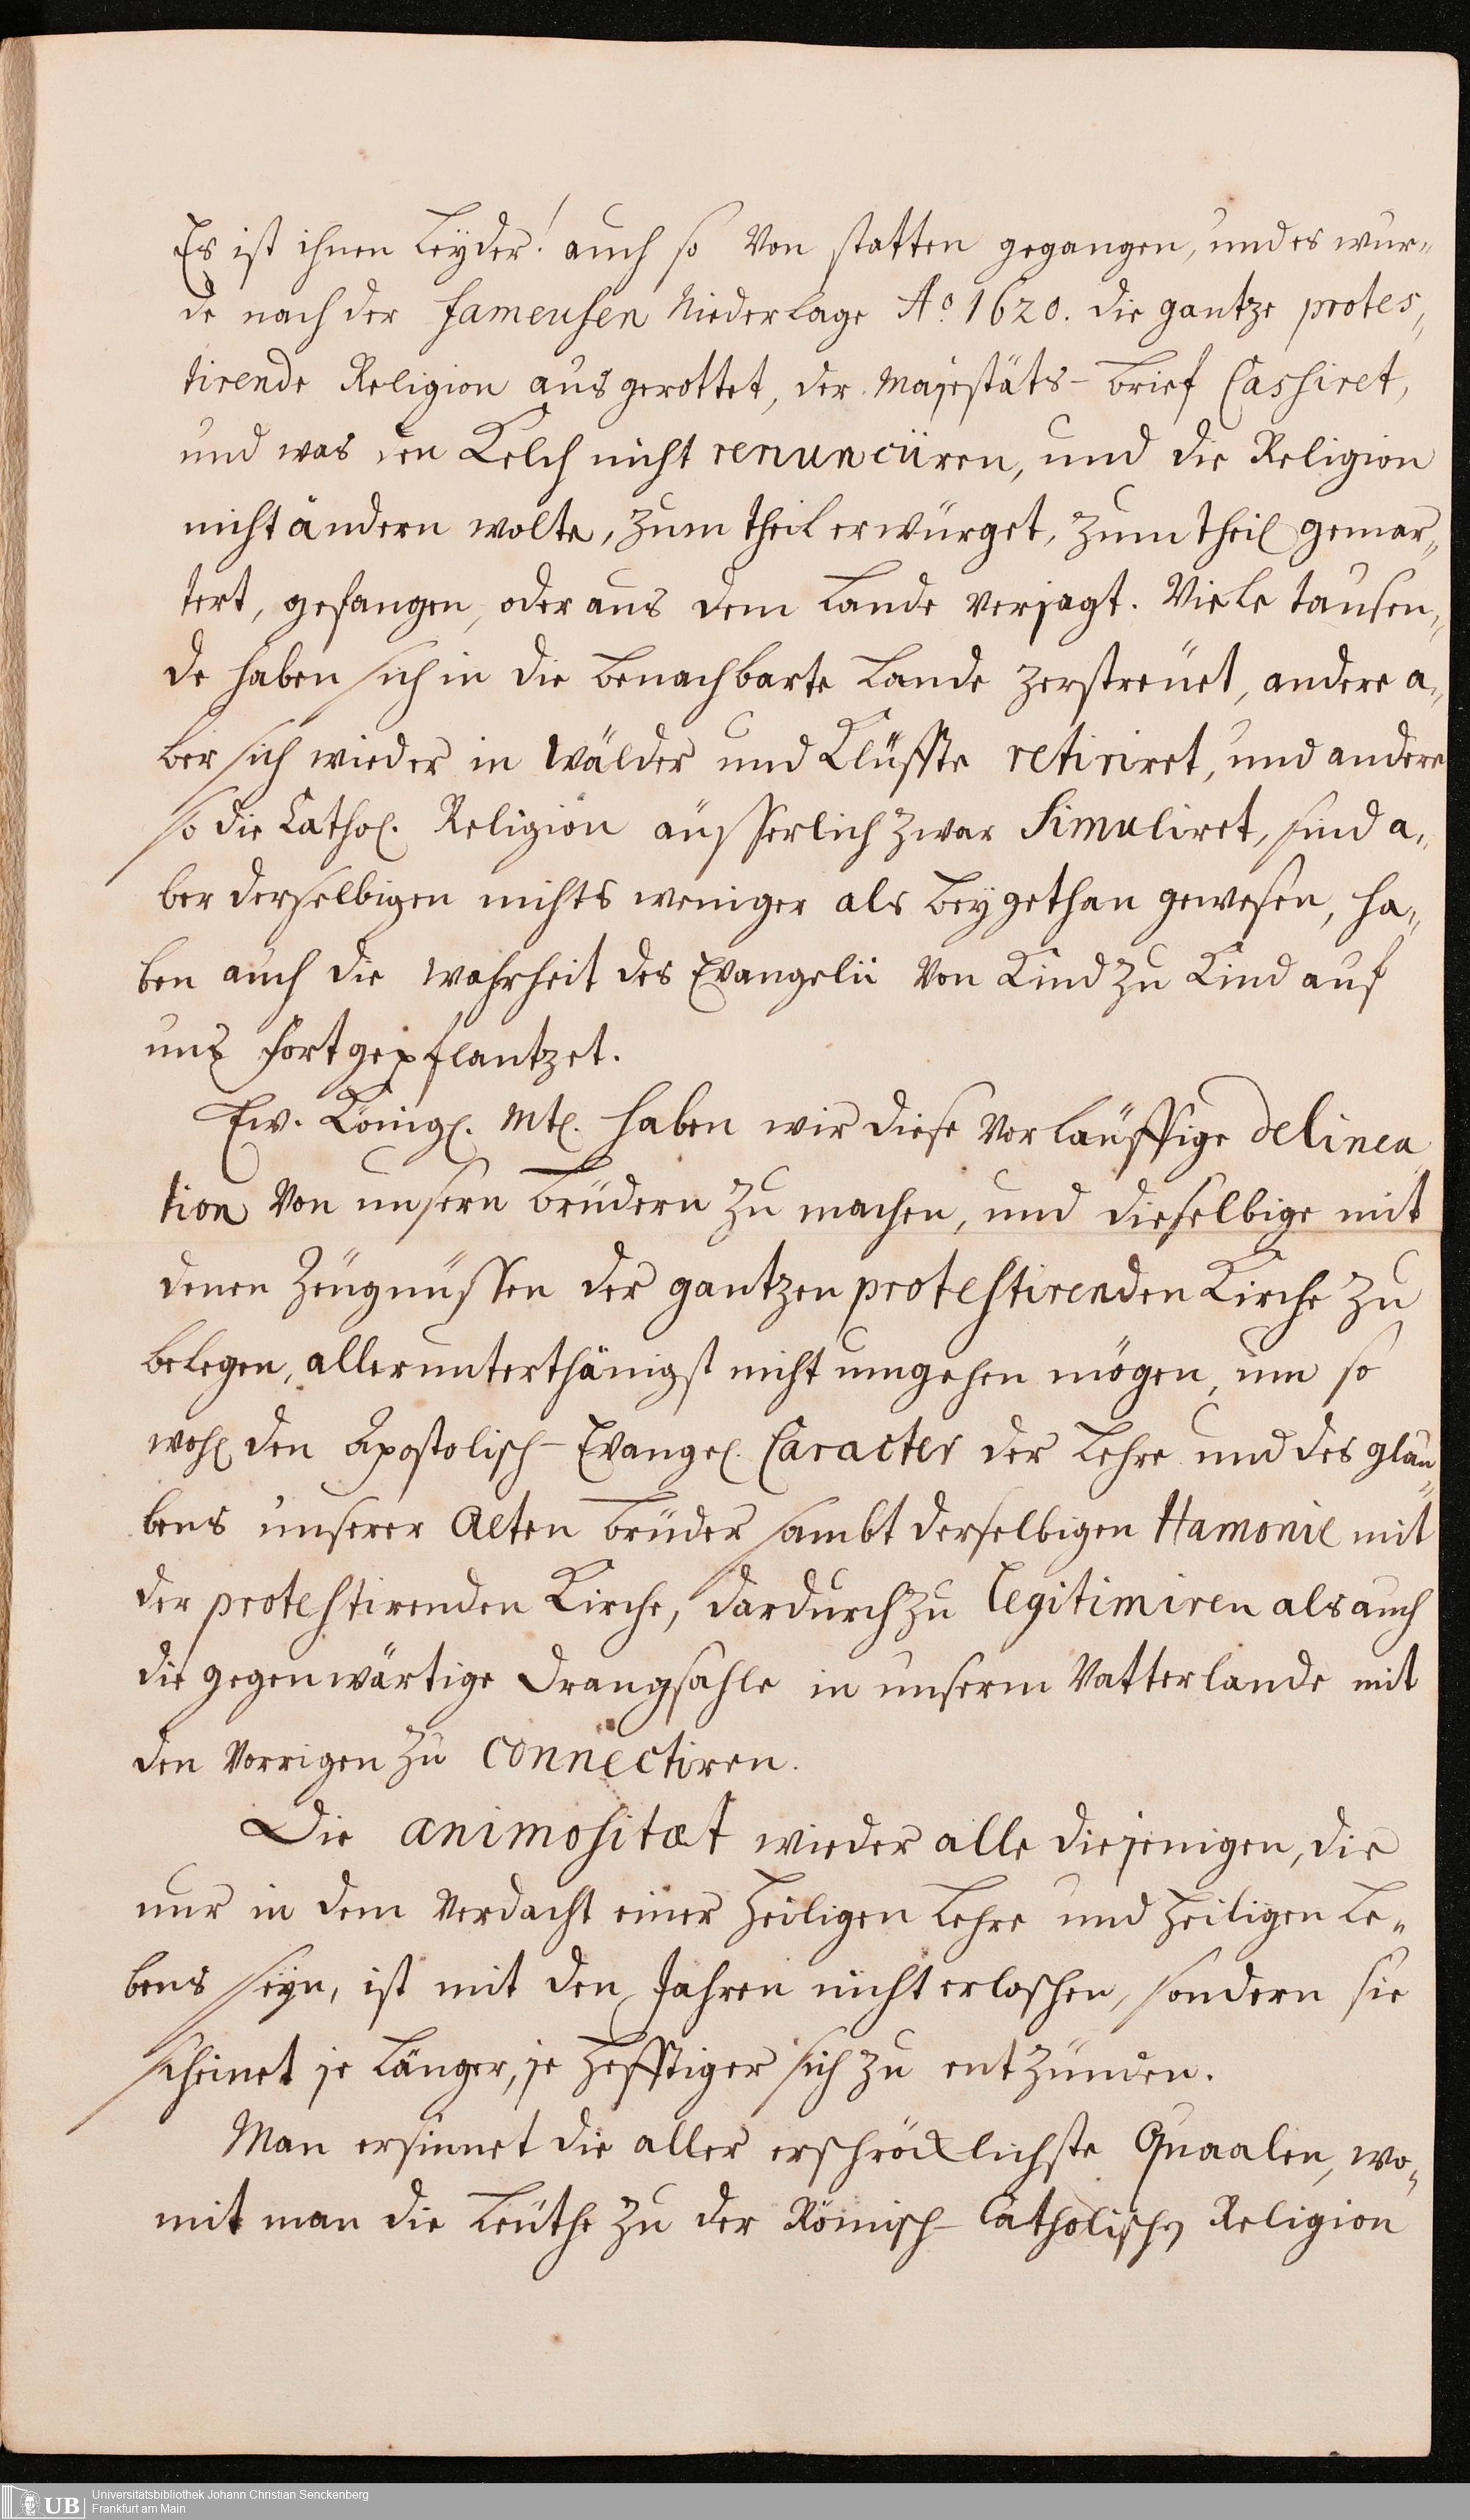 Es ist ihnen leÿder! auch so von statten gegangen, und es wur„
de nach der fameusen Niederlage Aº 1620. die gantze protes„
tirende Religion ausgerottet, der Majestäts-brief Cassiret,
und was den Kelch nicht renunciiren, und die Religion
nicht ändern wolte, zum theil erwürget, zum theil gemar„
tert, gefangen, oder aus dem Lande verjagt. Viele tausen„
de haben sich in die benachbarte Lande zerstreüet, andere a„
ber sich wieder in Wälder und Klüffte retiriret, und andere
so die Cathol. Religion äüsserlich zwar Simuliret, sind a„
ber derselbigen nichts weniger als beygethan gewesen, ha„
ben auch die Wahrheit des Evangelii von Kind zu Kind auf
uns fortgepflantzet.
Ew. Königl. Mt. haben wir diese vorläuffige delinea
tion von unsern brüdern zu machen, und dieselbige mit
denen Zeügnüssen der gantzen protestirenden Kirche zu
belegen, allerunterthänigst nicht umgehen mögen, um so
wohl den Apostolisch-Evangel. Caracter der Lehre und des glau„
bens unserer Alten brüder sambt derselbigen Hamonie mit
der protestirenden Kirche, dardurch zu legitimiren als auch
die gegenwärtige Drangsahle in unserm Vatterlande mit
den vorrigen zu connectiren.
Die animositæt wieder alle diejenigen, die
nur in dem Verdacht einer heiligen Lehre und heiligen Le„
bens seyn, ist mit den Jahren nicht erloschen, sondern sie
scheinet je länger, je hefftiger sich zu entzünden.
Man ersinnet die aller erschröcklichste Quaalen, wo„
mit man die Leüthe zu der Römisch-Catholischen Religion
UB Universitätsbibliothek Johann Christian Senckenberg
Frankfurt am Main